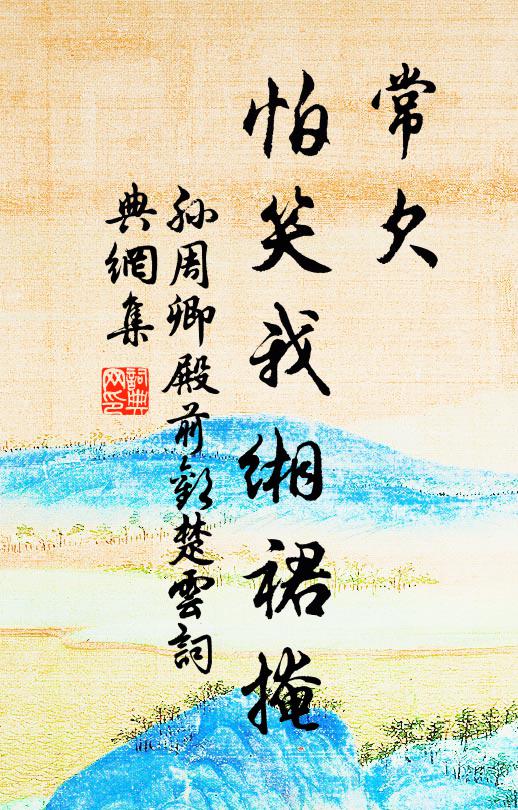 常欠
怕笑我緗裙掩
孫周卿殿前歡楚雲詞
典網集
詞典
网印